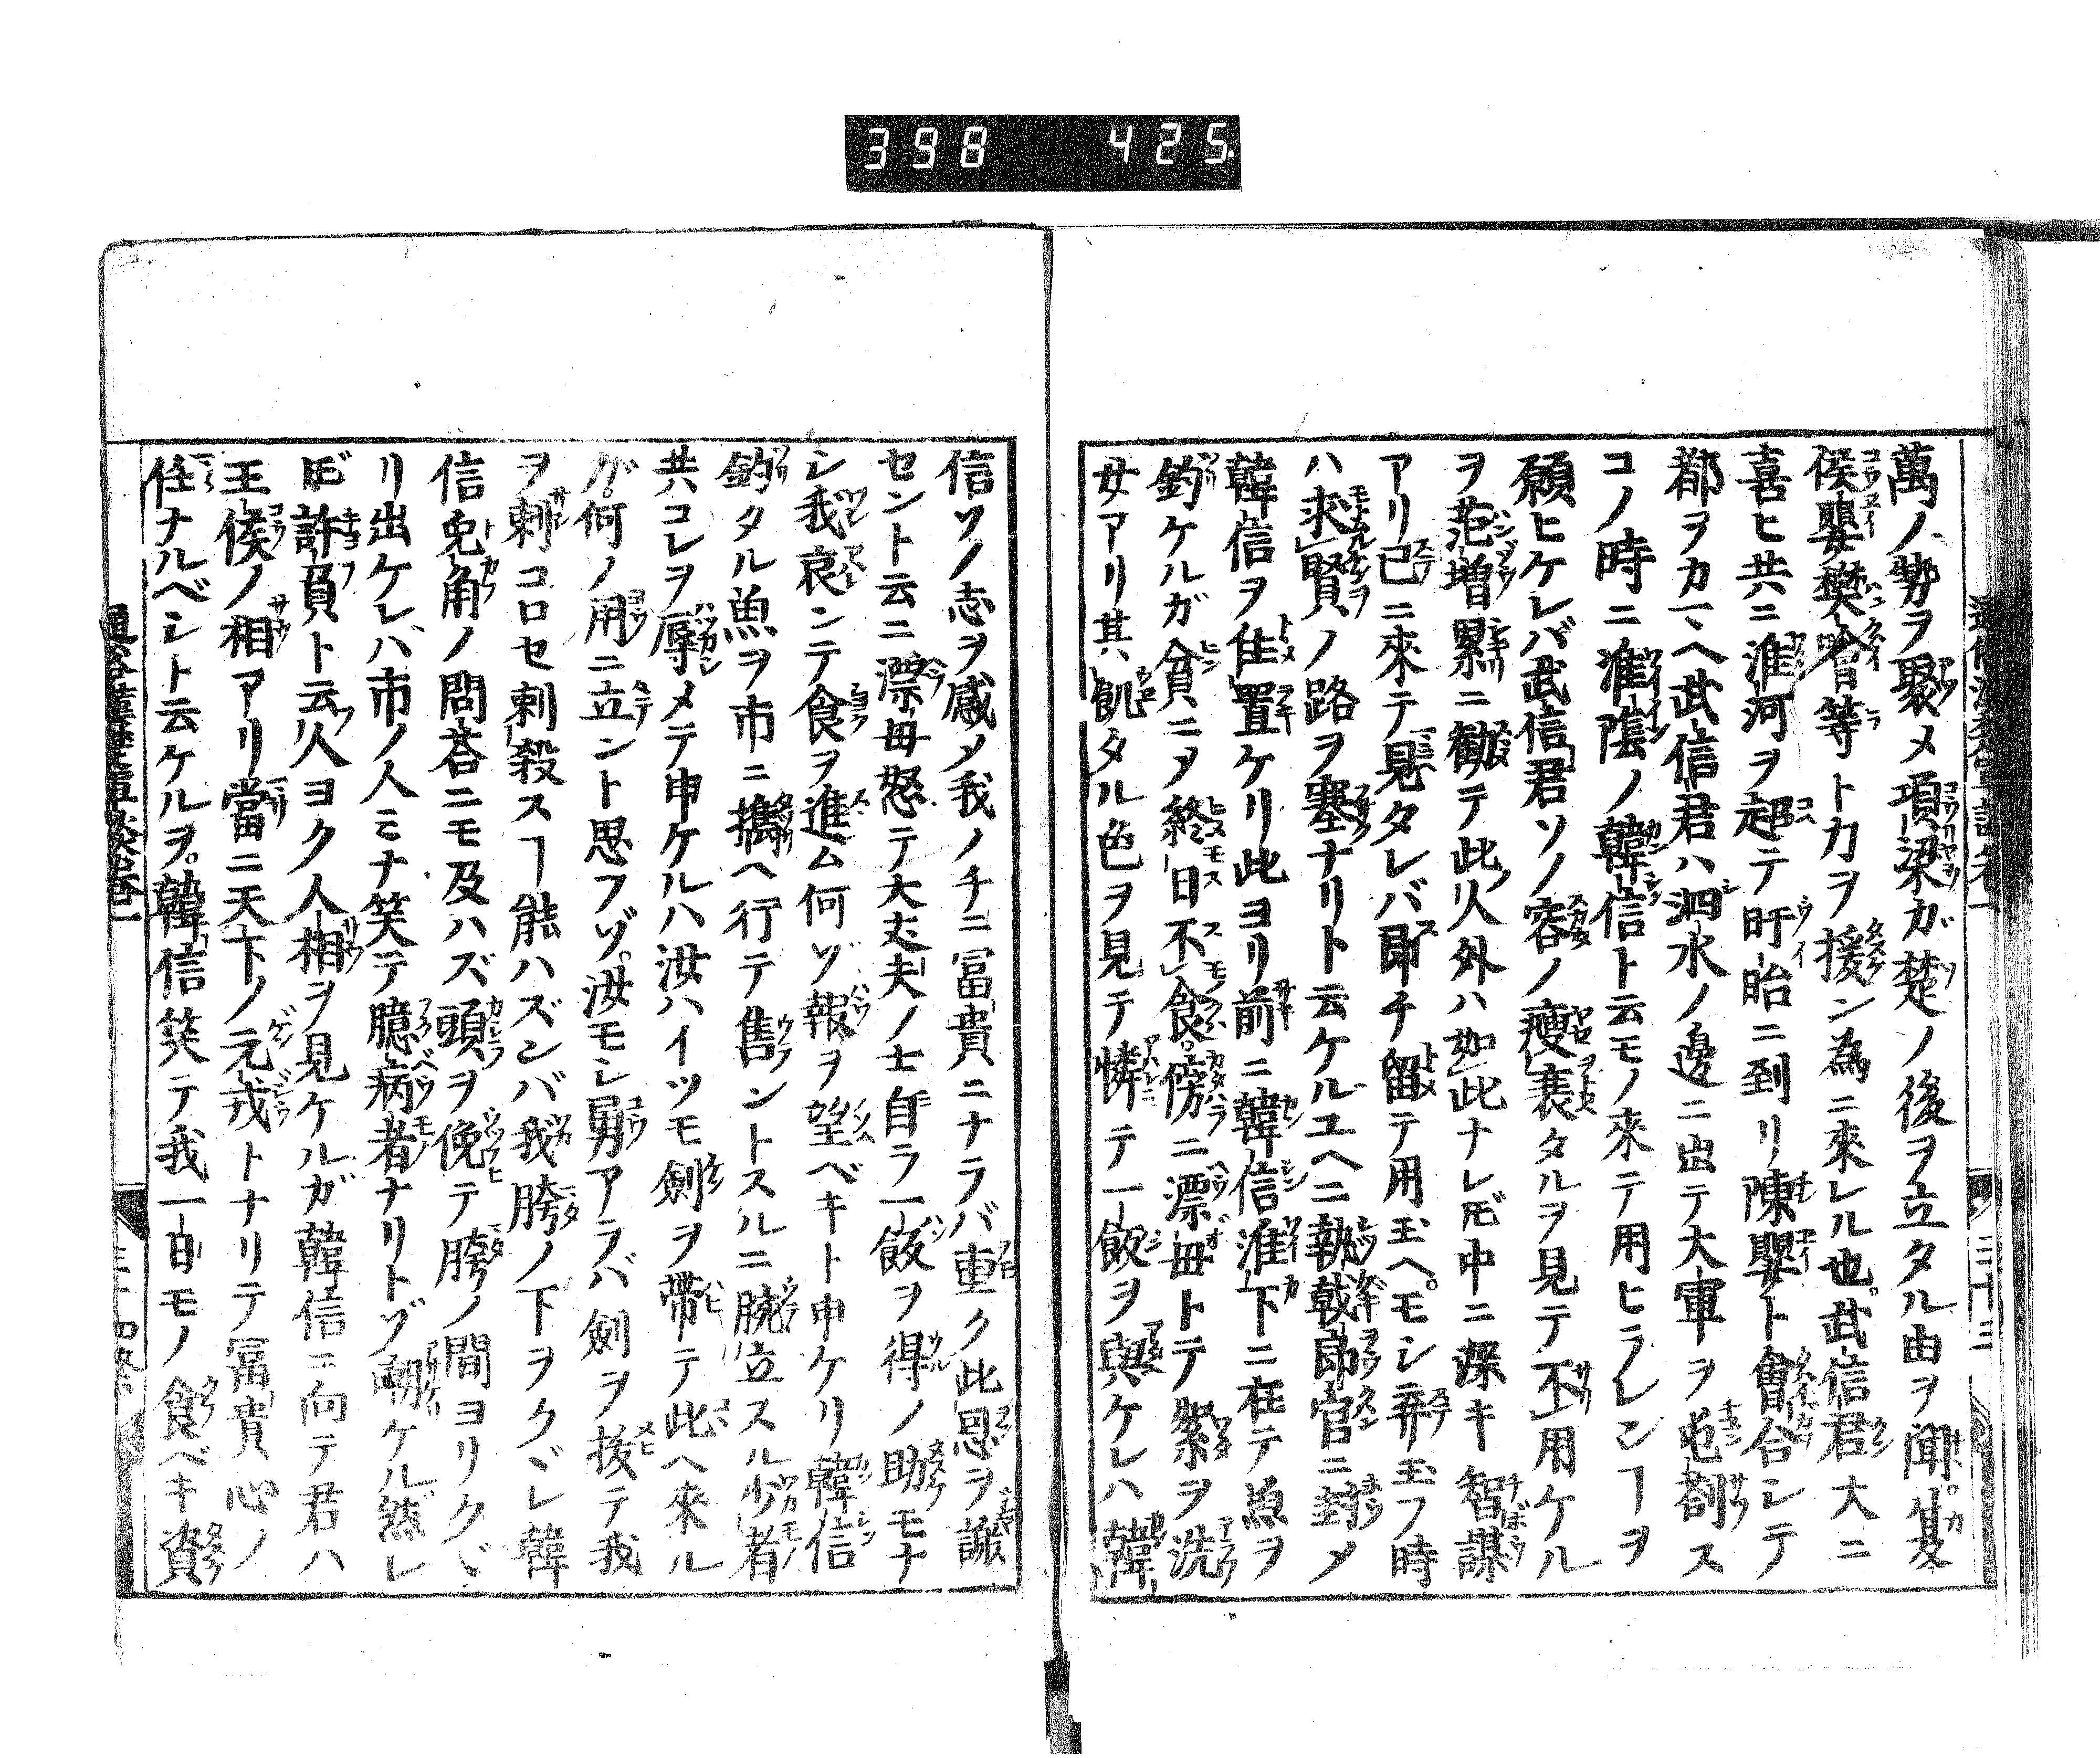 398 425
萬ノ勢ヲ聚メ項梁ガ楚ノ後ヲ立タル由ヲ聞。夏
侯嬰樊噲等ト力ヲ援ン為ニ來レル也。武信君大ニ
喜ヒ共ニ淮河ヲ超テ盱眙ニ到リ陳嬰ト會合シテ
都ヲカマヘ武信君ハ泗水ノ邊ニ出テ大軍ヲ屯剳ス
コノ時ニ淮陰ノ韓信ト云モノ來テ用ヒラレンヿヲ
願ヒケレバ武信君ソノ容ノ瘦衰タルヲ見テ不用ケル
ヲ范増累ニ勧テ此人外ハ如此ナレ𪜈中ニ深キ智謀
アリ已ニ來テ見タレバ即チ留テ用玉ヘ。モシ弃玉フ時
ハ求賢ノ路ヲ塞ナリト云ケルユヘニ執戟郎官ニ封メ
韓信ヲ住置ケリ此ヨリ前ニ韓信淮下ニ在テ魚ヲ
釣ケルガ貧ニメ終日不食。傍ニ漂毋トテ絮ヲ洗
女アリ其飢タル色ヲ見テ憐テ一飯ヲ與ケレハ韓
信ソノ志ヲ感メ我ノチニ冨貴ニナラバ重ク此恩ヲ謝
セント云ニ漂毋怒テ大丈夫ノ士自ラ一飯ヲ得ノ助モナ
シ我哀ンテ食ヲ進ム何ゾ報ヲ望ベキト申ケリ韓信
釣タル魚ヲ市ニ攜ヘ行テ售ントスルニ腕立スル少者
共コレヲ辱メテ申ケルハ汝ハイツモ劍ヲ帶テ此ヘ來ル
ガ。何ノ用ニ立ント思フゾ。汝モシ勇アラバ劍ヲ拔テ我
ヲ刺コロセ刺殺スヿ能ハズンバ我胯ノ下ヲクヾレ韓
信兎角ノ問荅ニモ及ハズ頭ヲ俛テ胯ノ間ヨリクヾ
リ出ケレバ市ノ人ミナ笑テ臆病者ナリトゾ嘲ケル然レ
𪜈許負ト云人ヨク人相ヲ見ケルガ韓信ニ向テ君ハ
王侯ノ相アリ當ニ天下ノ元戎トナリテ冨貴心ノ
任ナルベシト云ケルヲ。韓信笑テ我一日モノ食ベキ資